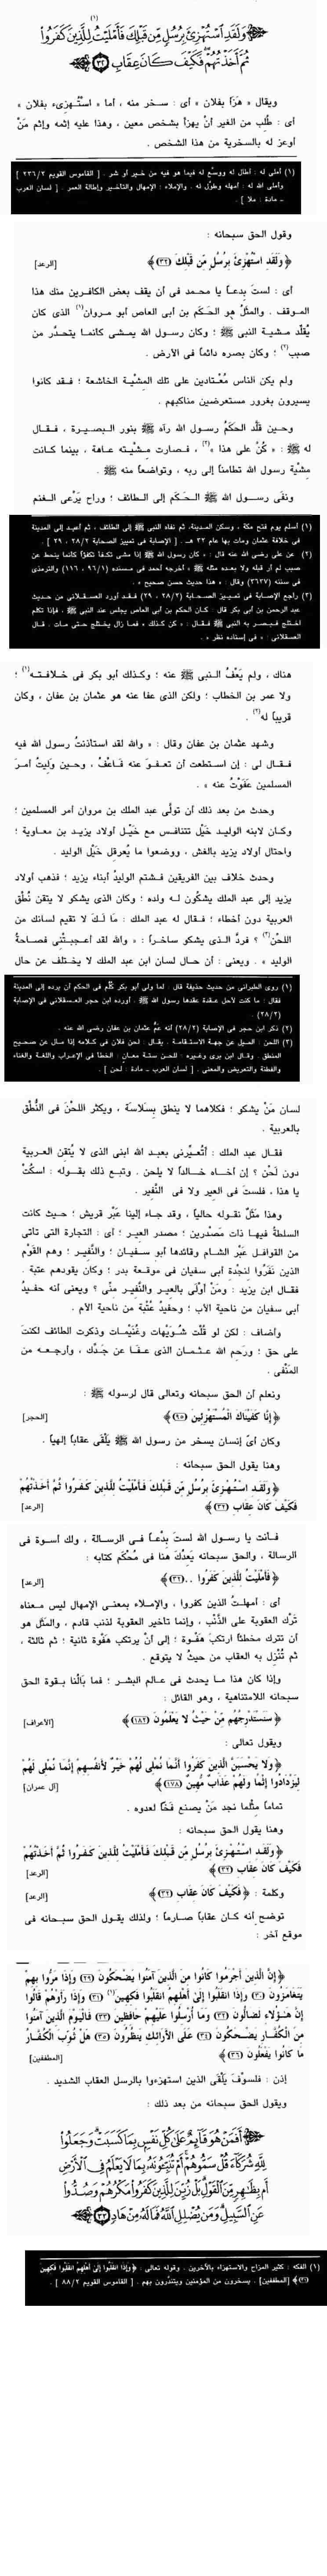 (١)
وَلَقَدِ اسْتُهْزِئَ بِرُسُلٍ مِّن قَبْلِكَ فَأَمْلَيْتُ لِلَّذِينَ كَفَرُوا
ثُمَّ أَخَذْتُهُمْ فَكَيْفَ كَانَ عِقَابِ ٣٢
ويقال « هَزَأ بفلان » أى : سخر منه ، أما « اسْتُهْزِىء بفلان »
أى : طُلِب من الغير أنْ يهزأ بشخص معين ، وهذا عليه إثمه وإثم مَنْ
أوعز له بالسخرية من هذا الشخص .
(١) أملى له : أطال له ووسَّع له فيما هو فيه من خير أو شر . [ القاموس القويم ٢٣٦/٢ ]
وأملى الله له : أمهله وطوَّل له . والإملاء : الإمهال والتأخير وإطالة العمر . [ لسان العرب
- مادة : ملا ] .
وقول الحق سبحانه :
﴿ وَلَقَدِ اسْتُهْزِئَ بِرُسُلٍ مِّن قَبْلِكَ (٣٢) ﴾ [الرعد]
أى : لستَ بِدعاً يا محمد فى أن يقف بعض الكافرين منك هذا
الموقف . والمثَلُ هو الحكَم بن أبى العاص أبو مروان(١) الذى كان
يُقلِّد مشية النبى ﷺ ؛ وكان رسول الله يمشى كأنما يتحدَّر من
صبب(٢) ؛ وكان بصره دائماً فى الأرض .
ولم يكن الناس مُعْتادين على تلك المِشْية الخاشعة ؛ فقد كانوا
يسيرون بغرور مستعرضين مناكبهم .
وحين قلَّد الحكَمُ رسول الله رآه ﷺ بنور البصيرة ، فقال
له ﷺ : « كُنْ على هذا »(٣) ، فصارت مِشْيته عاهة ، بينما كانت
مِشْية رسول الله تطامناً إلى ربه ، وتواضعاً منه ﷺ .
ونفَى رسول الله ﷺ الحكَم إلى الطائف ؛ وراح يَرْعى الغنم
(١) أسلم يوم فتح مكة ، وسكن المدينة، ثم نفاه النبى ﷺ إلى الطائف ، ثم أعيد إلى المدينة
فى خلافة عثمان ومات بها عام ٣٢ هـ . [ الإصابة فى تمييز الصحابة ٢٨/٢ ، ٢٩ ] .
(٢) عن على رضى الله عنه قال : « كان رسول الله ﷺ إذا مشى تكفأ تكفؤاً كأنما ينحط عن
صبب لم أر قبله ولا بعده مثله ﷺ » أخرجه أحمد فى مسنده (٩٦/١ ، ١١٦) والترمذى
فى سننه (٣٦٣٧) وقال : « هذا حديث حسن صحيح » .
(٣) راجع الإصابة فى تمييز الصحابة (٢٨/٢ ، ٢٩) فقد أورد العسقلانى من حديث
عبد الرحمن بن أبى بكر قال: كان الحكم بن أبى العاص يجلس عند النبى ﷺ ، فإذا تكلم
اختلج فبصر به النبى ﷺ فقال : « كن كذلك » فما زال يختلج حتى مات . قال
العسقلانى : « فى إسناده نظر » .
هناك ، ولم يَعْفُ النبى ﷺ عنه ؛ وكذلك أبو بكر فى خلافته(١) ؛
ولا عمر بن الخطاب ؛ ولكن الذى عفا عنه هو عثمان بن عفان ، وكان
قريباً له(٢) .
وشهد عثمان بن عفان وقال : « والله لقد استأذنتُ رسول الله فيه
فقال لى : إن استطعت أن تعفوَ عنه فَاعْفُ ، وحين وَليتُ أمرَ
المسلمين عفَوْتُ عنه » .
وحدث من بعد ذلك أن تولَّى عبد الملك بن مروان أمر المسلمين ؛
وكان لابنه الوليد خَيْل تتنافس مع خَيْل أولاد يزيد بن معاوية ؛
واحتال أولاد يزيد بالغش ، ووضعوا ما يُعرقل خَيْل الوليد .
وحدث خلاف بين الفريقين فشتم الوليدُ أبناء يزيد ؛ فذهب أولاد
يزيد إلى عبد الملك يشكُون له ولده ؛ وكان الذى يشكو لا يتقن نُطْق
العربية دون أخطاء ؛ فقال له عبد الملك : مَا لَكَ لا تقيم لسانك من
اللحْن(٣) ؟ فردَّ الذى يشكو ساخراً : « والله لقد أعجبتْنِى فصاحةُ
الوليد » . ويعنى : أن حال لسان ابن عبد الملك لا يختلف عن حال
(١) روى الطبرانى من حديث حذيفة قال : لما ولى أبو بكر كُلِّم فى الحكم أن يرده إلى المدينة
فقال : ما كنت لأحل عقدة عقدها رسول الله ﷺ . أورده ابن حجر العسقلانى فى الإصابة
(٢٨/٢) .
(٢) ذكر ابن حجر فى الإصابة (٢٨/٢) أنه عمُّ عثمان بن عفان رضى الله عنه .
(٣) اللحن : الميل عن جهة الاستقامة . يقال : لحن فلان فى كلامه إذا مال عن صحيح
المنطق . وقال ابن برى وغيره : للحن ستة معان : الخطأ فى الإعراب واللغة والغناء
والفطنة والتعريض والمعنى . [ لسان العرب - مادة : لحن ] .
لسان مَنْ يشكو ؛ فكلاهما لا ينطق بِسَلاسَة ، ويكثر اللحْنَ فى النُّطْق
بالعربية .
فقال عبد الملك : أتُعيِّرنى بعبد الله ابنى الذى لا يُتقن العربية
دون لَحْن ؟ إن أخاه خالداً لا يلحن . وتبع ذلك بقوله : اسكُتْ
يا هذا ، فلستَ فى العِير ولا فى النَّفير .
وهذا مَثَلٌ نقوله حالياً ، وقد جاء إلينا عَبْر قريش ؛ حيث كانت
السلطةُ فيها ذات مَصْدرين ؛ مصدر العِير ؛ أى : التجارة التى تأتى
من القوافل عَبْر الشام وقائدها أبو سفيان ؛ والنَّفير ؛ وهم القَوْم
الذين نَفَرُوا لنجْدة أبى سفيان فى موقعة بدر ؛ وكان يقودهم عتبة .
فقال ابن يزيد : ومَنْ أوْلَى بالعِير والنَّفير منِّى ؟ ويعنى أنه حفيدُ
أبى سفيان من ناحية الأب ؛ وحفيدُ عتْبة من ناحية الأم .
وأضاف : لكن لو قُلْت شُوَيْهات وغُنَيْمات وذكرت الطائف لكنتَ
على حق ؛ ورَحِم الله عثمان الذى عفَا عن جَدِّك ، وأرجعه من
المَنْفى .
ونعلم أن الحق سبحانه وتعالى قال لرسوله ﷺ :
﴿ إِنَّا كَفَيْنَاكَ الْمُسْتَهْزِئِينَ (٩٥) ﴾ [الحجر]
وكان أىُّ إنسان يسخر من رسول الله ﷺ يَلْقَى عقاباً إلهياً .
وهنا يقول الحق سبحانه :
﴿ وَلَقَدِ اسْتُهْزِئَ بِرُسُلٍ مِّن قَبْلِكَ فَأَمْلَيْتُ لِلَّذِينَ كَفَرُوا ثُمَّ أَخَذْتُهُمْ
فَكَيْفَ كَانَ عِقَابِ (٣٢) ﴾ [الرعد]
فأنت يا رسول الله لستَ بِدْعاً فى الرسالة ، ولك أسوة فى
الرسالة ، والحق سبحانه يَعِدُكَ هنا فى مُحْكَم كتابه :
﴿ فَأَمْلَيْتُ لِلَّذِينَ كَفَرُوا .. (٣٢) ﴾ [الرعد]
أى : أمهلتُ الذين كفروا ، والإملاء بمعنى الإمهال ليس معناه
تَرْك العقوبة على الذَّنْب ، وإنما تأخير العقوبة لذنب قادم ، والمَثَل هو
أن تترك مخطئاً ارتكبَ هَفْوة ؛ إلى أنْ يرتكب هَفْوة ثانية ؛ ثم ثالثة ،
ثم تُنْزِل به العقاب من حيثُ لا يتوقع .
وإذا كان هذا ما يحدث فى عالم البشر ؛ فما بَالُنا بقوة الحق
سبحانه اللامتناهية ، وهو القائل :
﴿ سَنَسْتَدْرِجُهُم مِّنْ حَيْثُ لَا يَعْلَمُونَ (١٨٢) ﴾ [الأعراف]
ويقول تعالى :
﴿ وَلَا يَحْسَبَنَّ الَّذِينَ كَفَرُوا أَنَّمَا نُمْلِي لَهُمْ خَيْرٌ لِّأَنفُسِهِمْ إِنَّمَا نُمْلِي لَهُمْ
لِيَزْدَادُوا إِثْمًا وَلَهُمْ عَذَابٌ مُّهِينٌ (١٧٨) ﴾ [آل عمران]
تماماً مثلما نجد مَنْ يصنع فَخّاً لعدوه .
وهنا يقول الحق سبحانه :
﴿ وَلَقَدِ اسْتُهْزِئَ بِرُسُلٍ مِّن قَبْلِكَ فَأَمْلَيْتُ لِلَّذِينَ كَفَرُوا ثُمَّ أَخَذْتُهُمْ
فَكَيْفَ كَانَ عِقَابِ (٣٢) ﴾ [الرعد]
وكلمة : ﴿ فَكَيْفَ كَانَ عِقَابِ (٣٢) ﴾ [الرعد]
توضح أنه كان عقاباً صارماً ؛ ولذلك يقول الحق سبحانه فى
موقع آخر :
﴿ إِنَّ الَّذِينَ أَجْرَمُوا كَانُوا مِنَ الَّذِينَ آمَنُوا يَضْحَكُونَ (٢٩) وَإِذَا مَرُّوا بِهِمْ
يَتَغَامَزُونَ (٣٠) وَإِذَا انقَلَبُوا إِلَىٰ أَهْلِهِمُ انقَلَبُوا فَكِهِينَ(١) (٣١) وَإِذَا رَأَوْهُمْ قَالُوا
إِنَّ هَٰؤُلَاءِ لَضَالُّونَ (٣٢) وَمَا أُرْسِلُوا عَلَيْهِمْ حَافِظِينَ (٣٣) فَالْيَوْمَ الَّذِينَ آمَنُوا
مِنَ الْكُفَّارِ يَضْحَكُونَ (٣٤) عَلَى الْأَرَائِكِ يَنظُرُونَ (٣٥) هَلْ ثُوِّبَ الْكُفَّارُ
مَا كَانُوا يَفْعَلُونَ (٣٦) ﴾ [المطففين]
إذن : فلسوفَ يَلْقَى الذين استهزءوا بالرسل العقاب الشديد .
ويقول الحق سبحانه من بعد ذلك :
أَفَمَنْ هُوَ قَائِمٌ عَلَىٰ كُلِّ نَفْسٍ بِمَا كَسَبَتْ وَجَعَلُوا
لِلَّهِ شُرَكَاءَ قُلْ سَمُّوهُمْ أَمْ تُنَبِّئُونَهُ بِمَا لَا يَعْلَمُ فِي الْأَرْضِ
أَم بِظَاهِرٍ مِّنَ الْقَوْلِ بَلْ زُيِّنَ لِلَّذِينَ كَفَرُوا مَكْرُهُمْ وَصُدُّوا
عَنِ السَّبِيلِ وَمَن يُضْلِلِ اللَّهُ فَمَا لَهُ مِنْ هَادٍ ٣٣
(١) الفكه : كثير المزاح والاستهزاء بالآخرين . وقوله تعالى : ﴿ وَإِذَا انقَلَبُوا إِلَىٰ أَهْلِهِمُ انقَلَبُوا فَكِهِينَ
(٣١) ﴾ [المطففين] . يسخرون من المؤمنين ويتندَّرون بهم . [ القاموس القويم ٨٨/٢ ] .